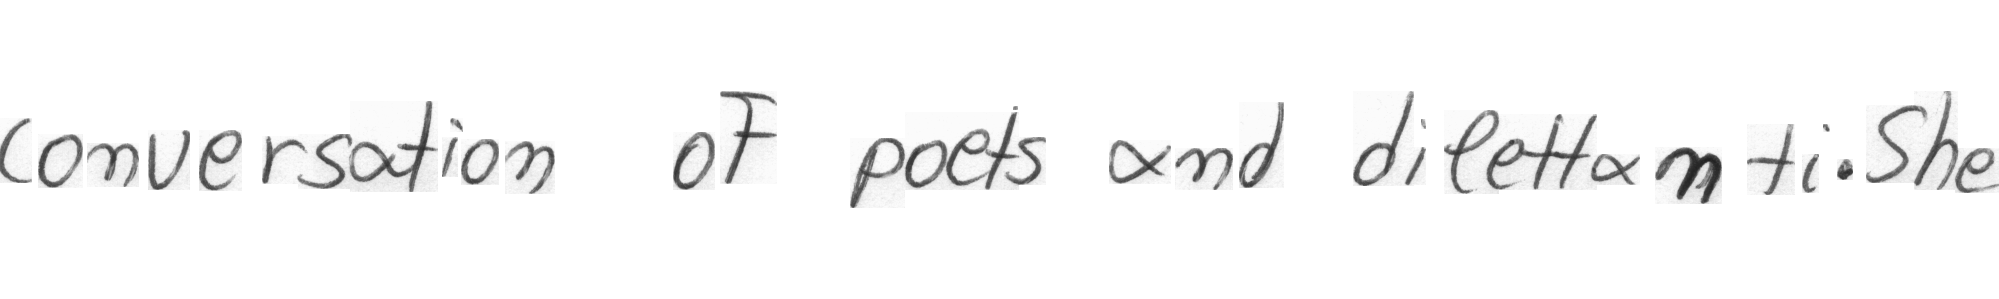 conversation of poets and dilettanti. She